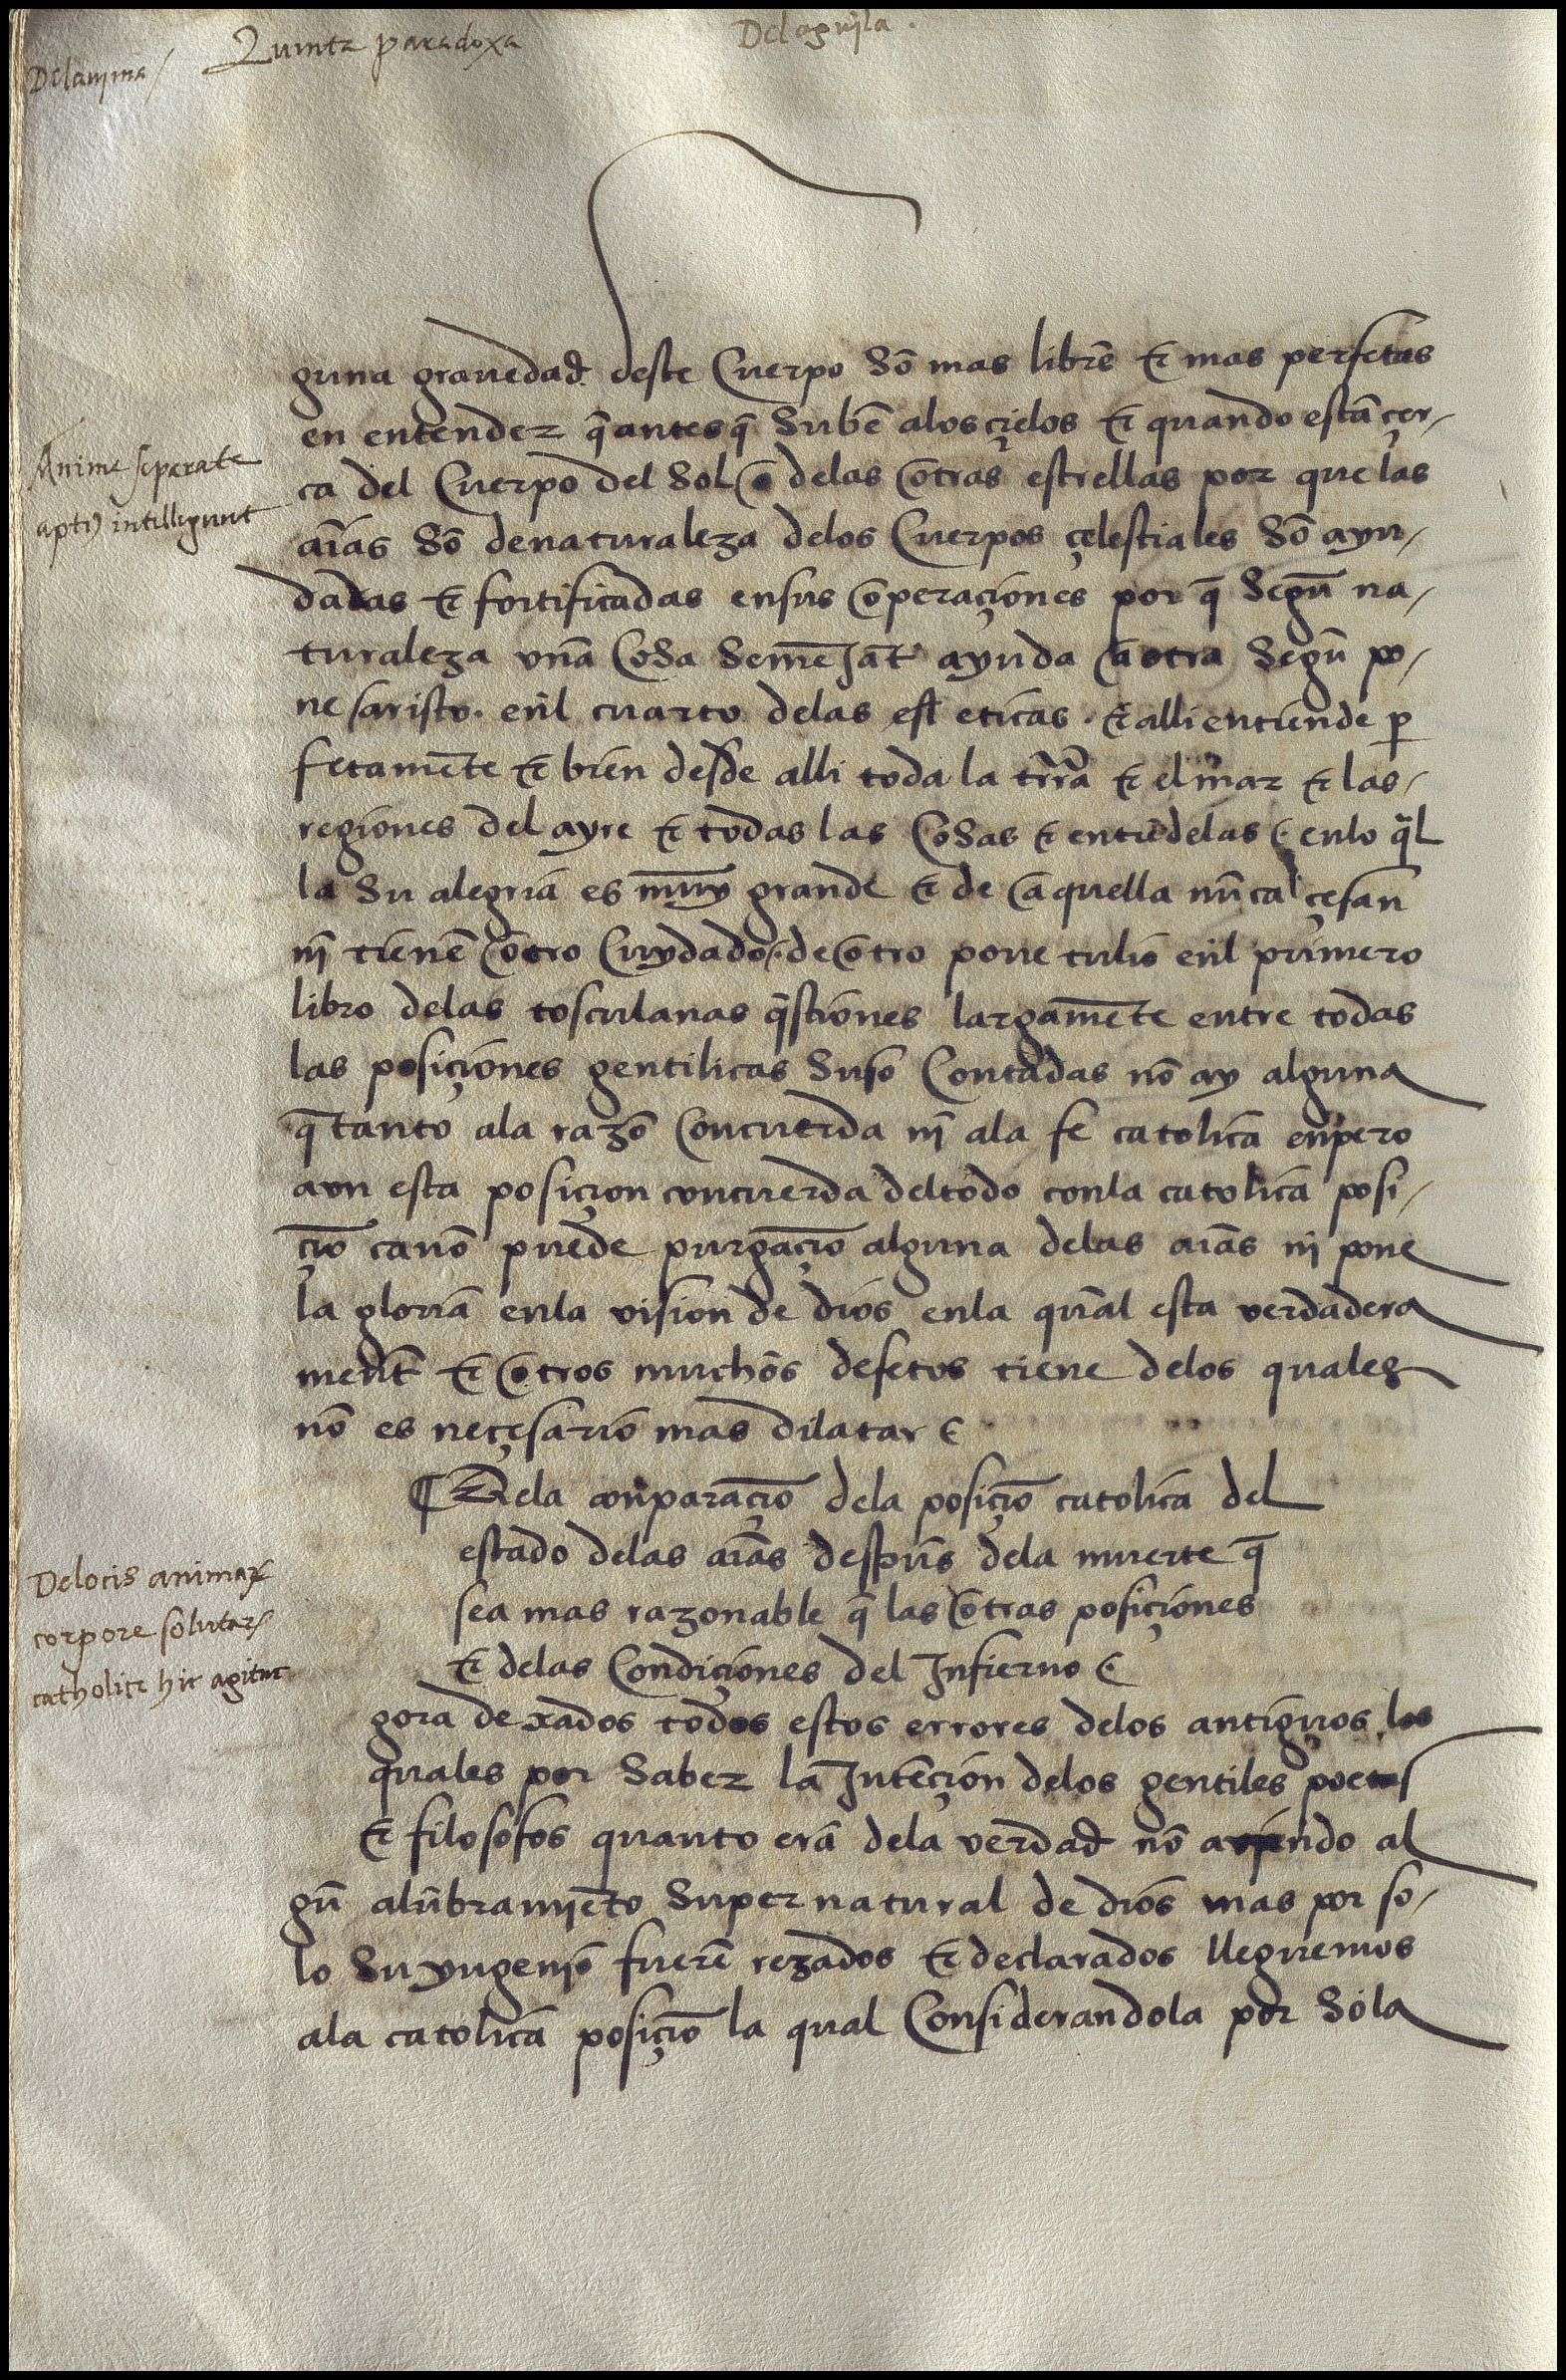 Quinta paradoxa
Del aguila.
Del anima/
guna grauedad deste Cuerpo Sõ mas librẽ & mas perfetas
en entender q̃ antes q̃ Subẽ alos çielos & quando estã çer/
ca del Cuerpo del Sol o delas otras estrellas por que las
Anime seperate
aptiꝰ intelligunt
aĩas Sõ de naturaleza delos Cuerpos çelestiales Sõ ayu/
dadas & fortificadas en sus operaçiones por q̃ Segũ na/
turaleza vna CoSa SemẽJãt ayuda a otra Segũ po/
ne aristo. enl cuarto delas eticas. & alli entiende ꝑ
fetamẽte & bien desde alli toda la trr̃a & el mar & las/
regiones del ayre & todas las CoSas & entiẽdelas enlo q̃l
la Su alegria es muy grande & de aquella nũca çesan
nĩ tienẽ otro Cuydado. de otro pone tulio enl primero
libro delas tosculanas q̃stiones largamẽte entre todas
las posiçiones gentilicas Suso Contadas nõ ay alguna
q̃ tanto ala razõ Concuerda nĩ ala fe catolica enpero
aun esta posiçion concuerda del todo conla catolica posi/
çiõ ca nõ puede purgaçiõ alguna delas aĩas ni pone
la gloria enla vision de dios enla qual esta verdadera
ment & otros muchos defetos tiene delos quales
nõ es neçesario mas dilatar
¶ Dela conparaçiõ dela posiçiõ catolica del
estado delas aĩas despues dela muerte q̃
sea mas razonable q̃ las otras posiçiones
& delas Condiçiones del Jnfierno
De locis animaꝝ
corpore solutaꝝ
catholice hic agitur
gora dexados todos estos errores delos antiguos los
quales por Saber la Jntẽçion delos gentiles poetas
& filosofos quanto erã dela verdad nõ avjendo al
gũ alũbramjẽto Supernatural de dios mas por so/
lo Su yngenjo fuerẽ rezados & declarados lleguemos
ala catolica posiçiõ la qual Considerandola por Sola